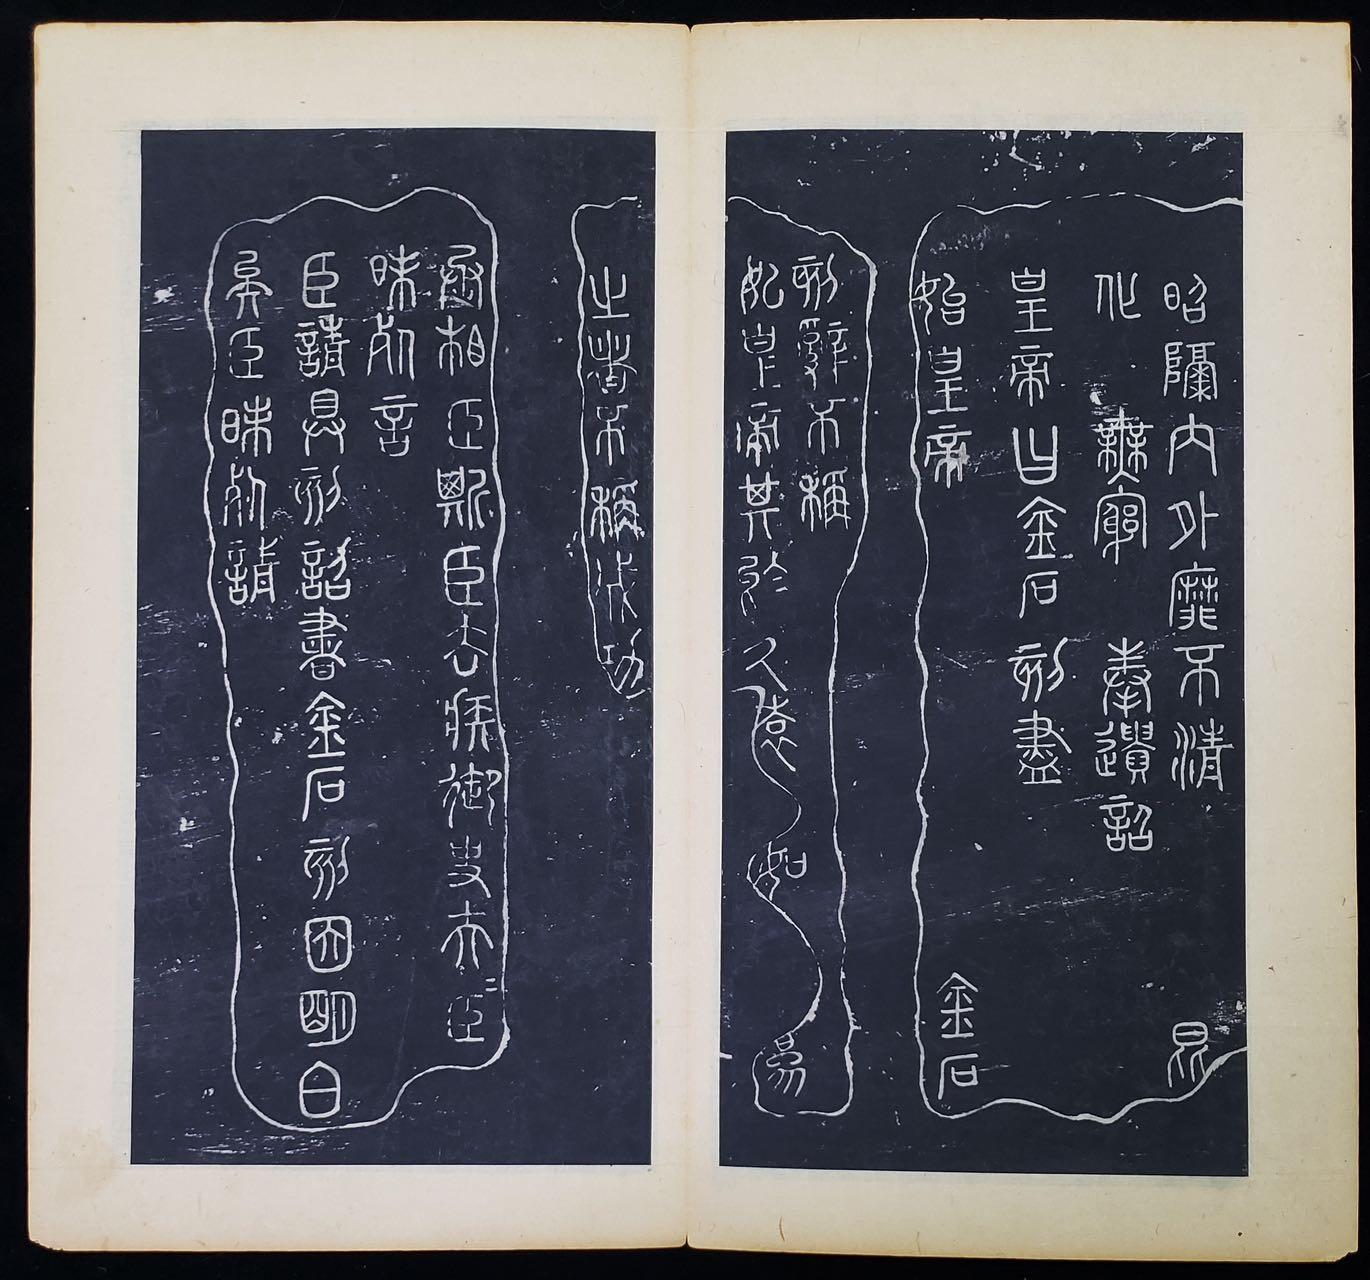 昭隔内外靡不清昆
化無窮奉遺詔
皇帝曰金石刻盡
始皇帝金石
刻辭不稱
始皇帝其於久遠如為
之者不稱成功
丞相臣斯臣去疾御史夫=臣
昧死言
臣請具刻詔書金石刻因明白
矣臣昧死請